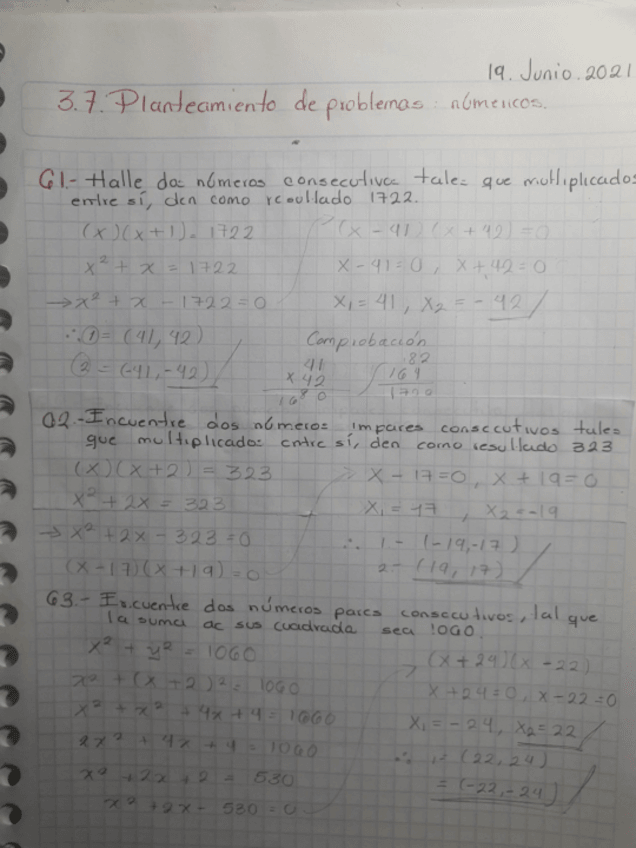 19. Junio. 2021
3.7. Planteamiento de problemas: númericos.
61.- Halle dos números consecutivos tales que multiplicados
entre sí, den como resultado 1722.
(x)(x+1) = 1722
x² + x = 1722
→ x² + x - 1722 = 0
(x - 41)(x + 42) = 0
x - 41 = 0, x + 42 = 0
x₁ = 41, x₂ = - 42
∴ ① = (41, 42)
② = (-41, -42)
Comprobación
41
x 42
82
164
62.- Encuentre dos números impares consecutivos tales
que multiplicados entre sí, den como resultado 323
(x)(x+2) = 323
x² + 2x = 323
→ x² + 2x - 323 = 0
(x - 17)(x + 19) = 0
x - 17 = 0, x + 19 = 0
x₁ = 17, x₂ = -19
∴ 1 - (-19, -17)
2 - (19, 17)
63.- Encuentre dos números pares consecutivos, tal que
la suma de sus cuadrados sea 1060.
x² + y² = 1060
x² + (x + 2)² = 1060
x² + x² + 4x + 4 = 1060
2x² + 4x + 4 = 1060
x² + 2x + 2 = 530
x² + 2x - 530 = 0
(x + 24)(x - 22)
x + 24 = 0, x - 22 = 0
x₁ = - 24, x₂ = 22
∴ 1 = (22, 24)
= (-22, -24)